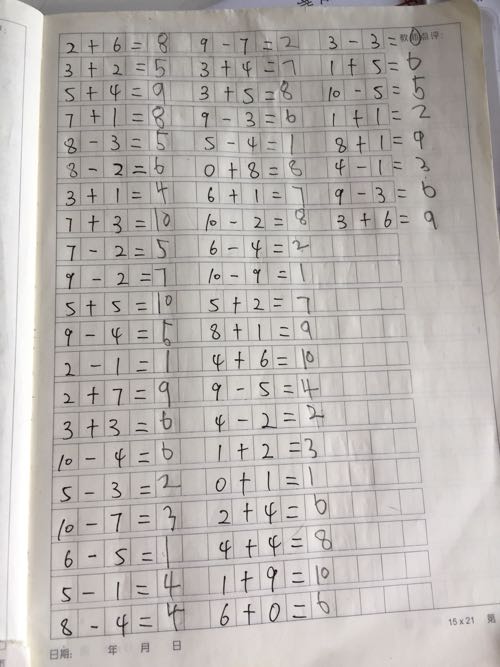 教师点评:
2 + 6 = 8 9 - 7 = 2 3 - 3 = 0
3 + 2 = 5 3 + 4 = 7 1 + 5 = 6
5 + 4 = 9 3 + 5 = 8 10 - 5 = 5
7 + 1 = 8 9 - 3 = 6 1 + 1 = 2
8 - 3 = 5 5 - 4 = 1 8 + 1 = 9
8 - 2 = 6 0 + 8 = 8 4 - 1 = 3
3 + 1 = 4 6 + 1 = 7 9 - 3 = 6
7 + 3 = 10 10 - 2 = 8 3 + 6 = 9
7 - 2 = 5 6 - 4 = 2
9 - 2 = 7 10 - 9 = 1
5 + 5 = 10 5 + 2 = 7
9 - 4 = 5 8 + 1 = 9
2 - 1 = 1 4 + 6 = 10
2 + 7 = 9 9 - 5 = 4
3 + 3 = 6 4 - 2 = 2
10 - 4 = 6 1 + 2 = 3
5 - 3 = 2 0 + 1 = 1
10 - 7 = 3 2 + 4 = 6
6 - 5 = 1 4 + 4 = 8
5 - 1 = 4 1 + 9 = 10
8 - 4 = 4 6 + 0 = 6
日期: 年 月 日 15 x 21 第